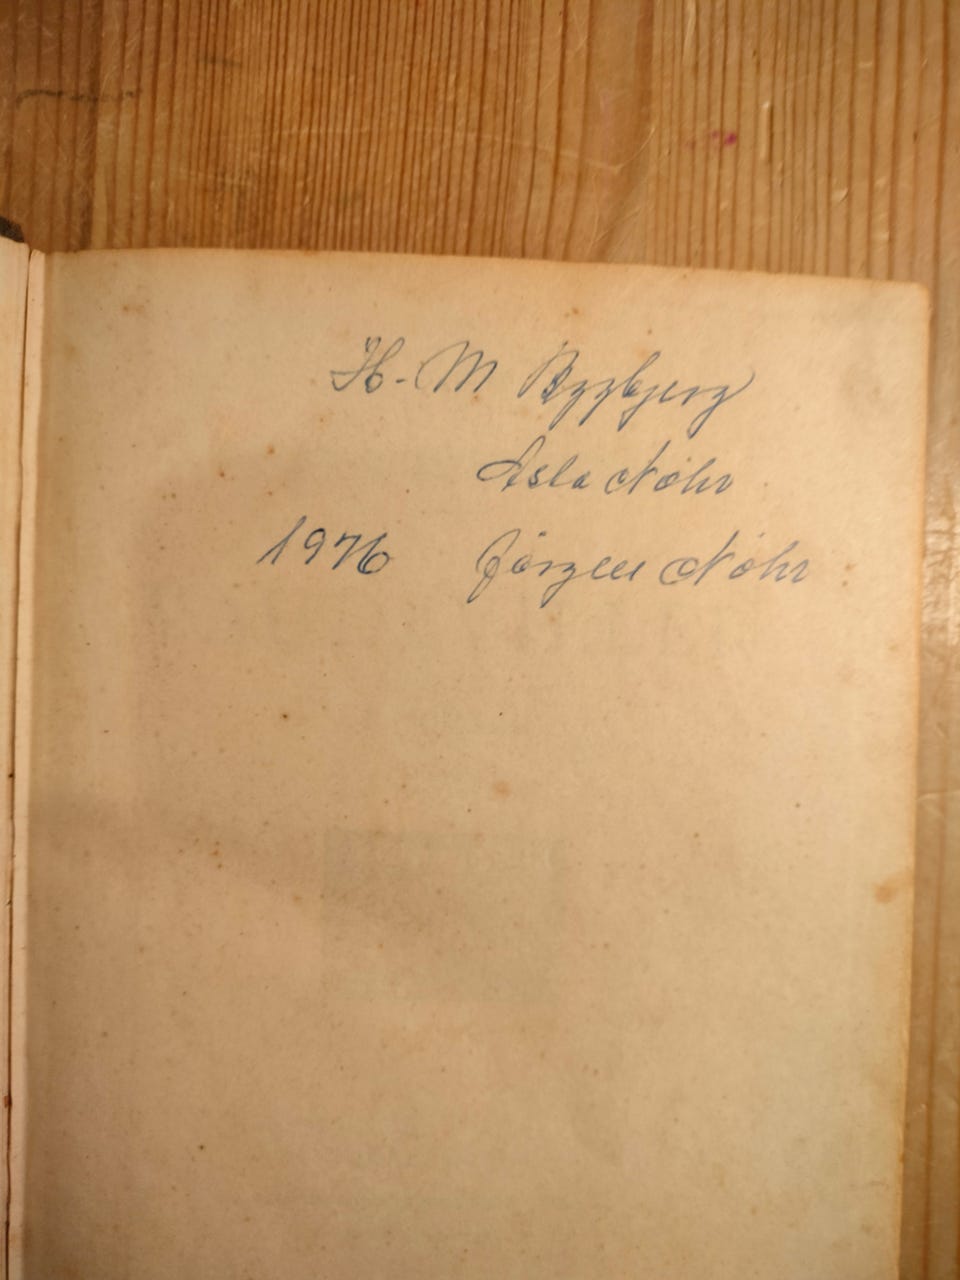 H. M Bygbjerg
Asla Nöhr
1976 Jörgen Nöhr